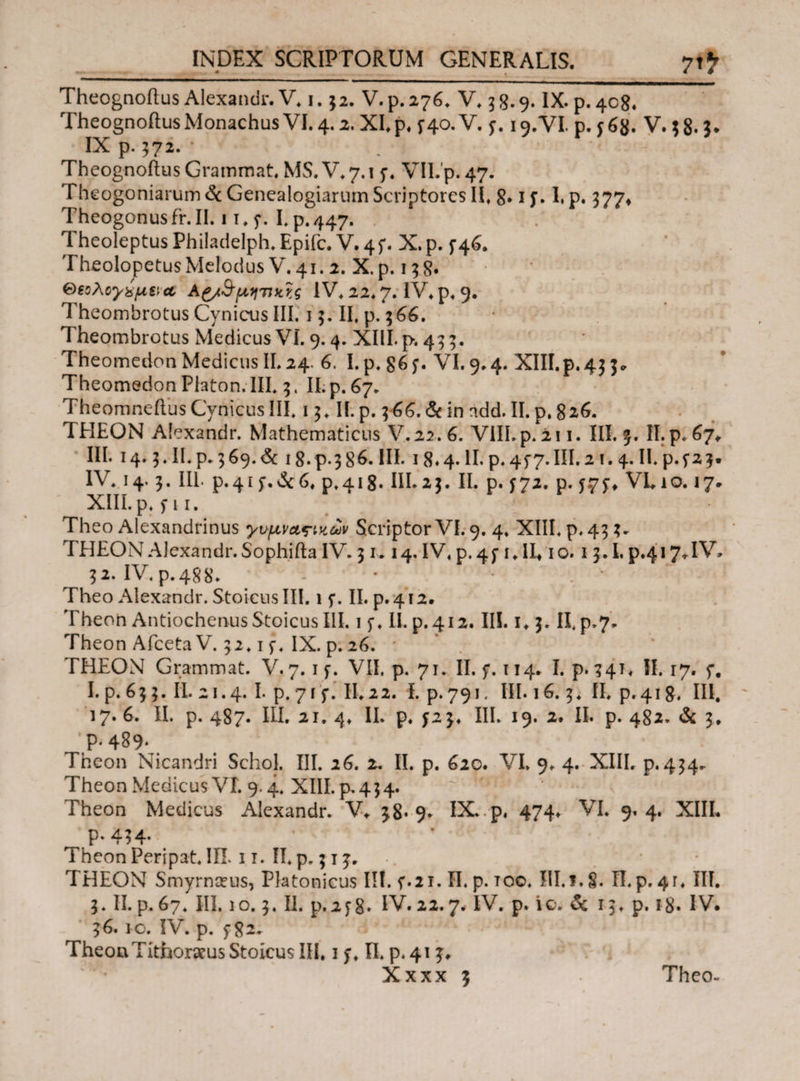 INDEX SCRIPTORUM GENERALIS. 717
Theognoſtus Alexandr. V. 1. 32. V. p. 276. V. 38. 9. IX. p. 408.
Theognoſtus Monachus VI. 4. 2. XI. p. 540. V. 5. 19. VI. p. 568. V. 38. 3.
IX p. 372.
Theognoſtus Grammat. MS. V. 7. 15. VII. p. 47.
Theogoniarum & Genealogiarum Scriptores II. 8. 15. I. p. 377.
Theogonus fr. II. 11. 5. I. p. 447.
Theoleptus Philadelph. Epiſc. V. 45. X. p. 546.
Theolopetus Melodus V. 41. 2. X. p. 138.
Θεολογȣμενα Αριθμητικῆς IV. 22. 7. IV. p. 9.
Theombrotus Cynicus III. 13. II. p. 366.
Theombrotus Medicus VI. 9. 4. XIII. p. 433.
Theomedon Medicus II. 24. 6. I. p. 865. VI. 9. 4. XIII. p. 433.
Theomedon Platon. III. 3. II. p. 67.
Theomneſtus Cynicus III. 13. II. p. 366. & in add. II. p. 826.
THEON Alexandr. Mathematicus V. 22. 6. VIII. p. 211. III. 3. II. p. 67.
III. 14. 3. II. p. 369. & 18. p. 386. III. 18. 4. II. p. 457. III. 21. 4. II. p. 523.
IV. 14. 3. III. p. 415. & 6. p. 418. III. 23. II. p. 572. p. 575. VI. 10. 17.
XIII. p. 511.
Theo Alexandrinus γυμναςικῶν Scriptor VI. 9. 4. XIII. p. 433.
THEON Alexandr. Sophiſta IV. 31. 14. IV. p. 451. II. 10. 13. I. p. 417. IV.
32. IV. p. 488.
Theo Alexandr. Stoicus III. 15. II. p. 412.
Theon Antiochenus Stoicus III. 15. II. p. 412. III. 1. 3. II. p. 7.
Theon Aſceta V. 32. 15. IX. p. 26.
THEON Grammat. V. 7. 15. VII. p. 71. II. 5. 114. I. p. 341. II. 17. 5.
I. p. 633. II. 21. 4. I. p. 715. II. 22. I. p. 791. III. 16. 3. II. p. 418. III.
17. 6. II. p. 487. III. 21. 4. II. p. 523. III. 19. 2. II. p. 482. & 3.
p. 489.
Theon Nicandri Schol. III. 26. 2. II. p. 620. VI. 9. 4. XIII. p. 434.
Theon Medicus VI. 9. 4. XIII. p. 434.
Theon Medicus Alexandr. V. 38. 9. IX. p. 474. VI. 9. 4. XIII.
p. 434.
Theon Peripat. III. 11. II. p. 313.
THEON Smyrnæus, Platonicus III. 5. 21. II. p. 100. III. 1. 8. II. p. 41. III.
3. II. p. 67. III. 10. 3. II. p. 258. IV. 22. 7. IV. p. 10. & 13. p. 18. IV.
36. 10. IV. p. 582.
Theon Tithoræus Stoicus III. 15. II. p. 413.
Xxxx 3 Theo-